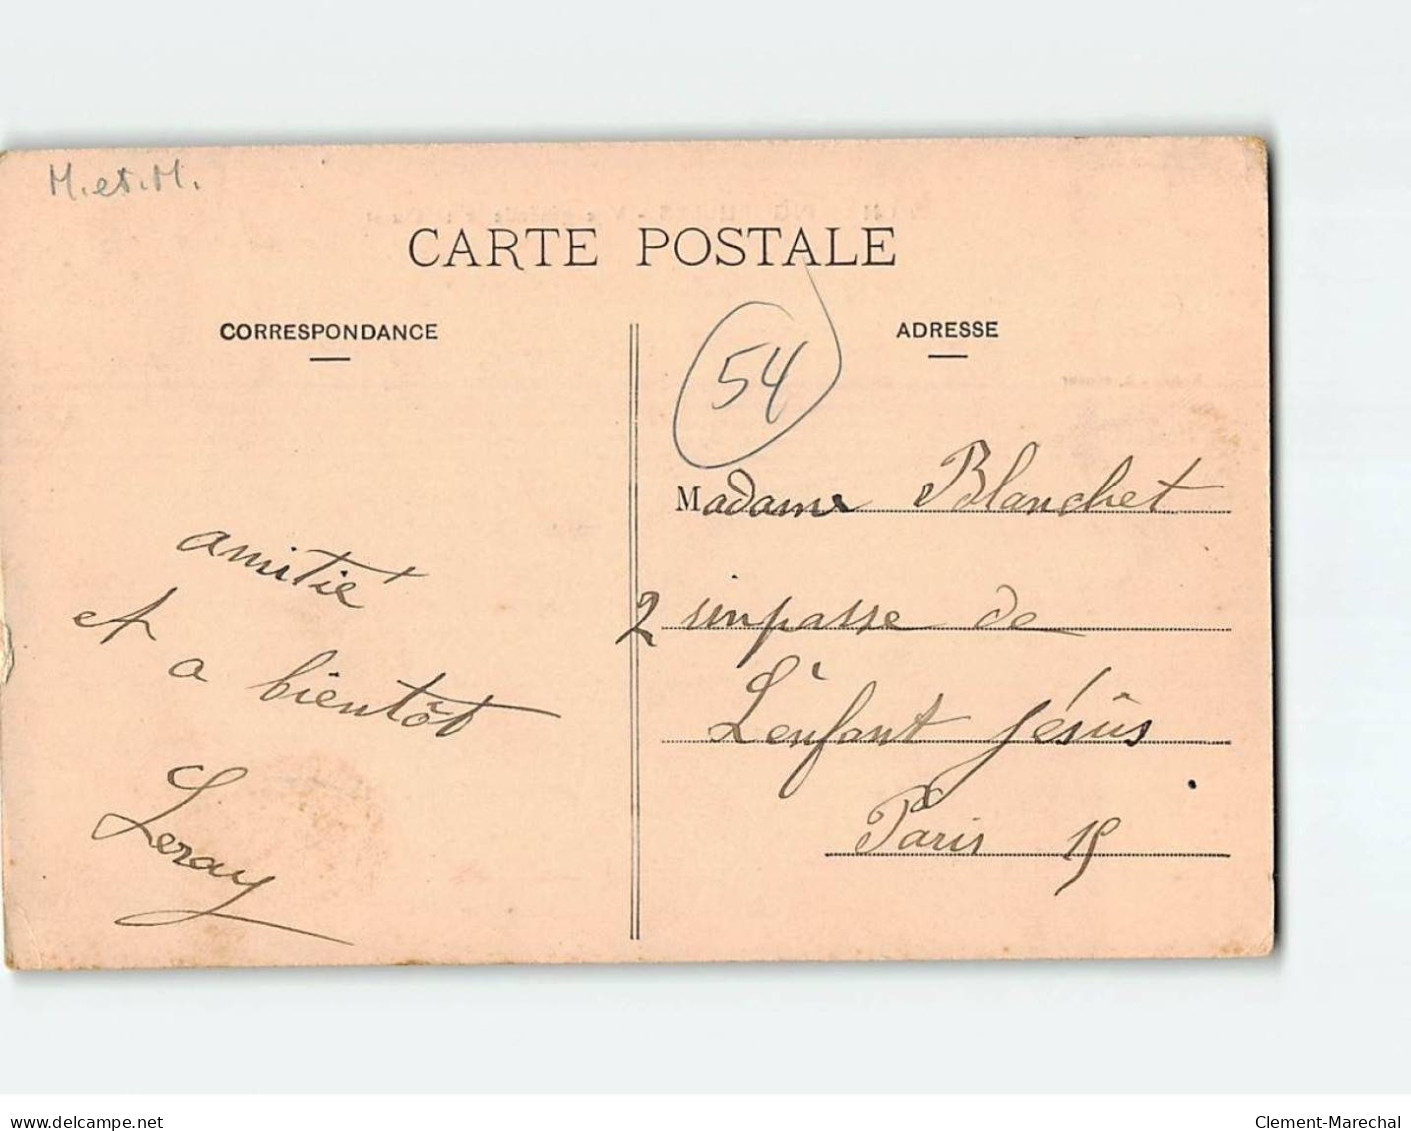 M. et. M.
CARTE POSTALE
CORRESPONDANCE
ADRESSE
54
Madame Blanchet
2 impasse de
L'enfant Jésus
Paris 15
amitié
et
a bientôt
Leray
www.delcampe.net
Clement-Marechal